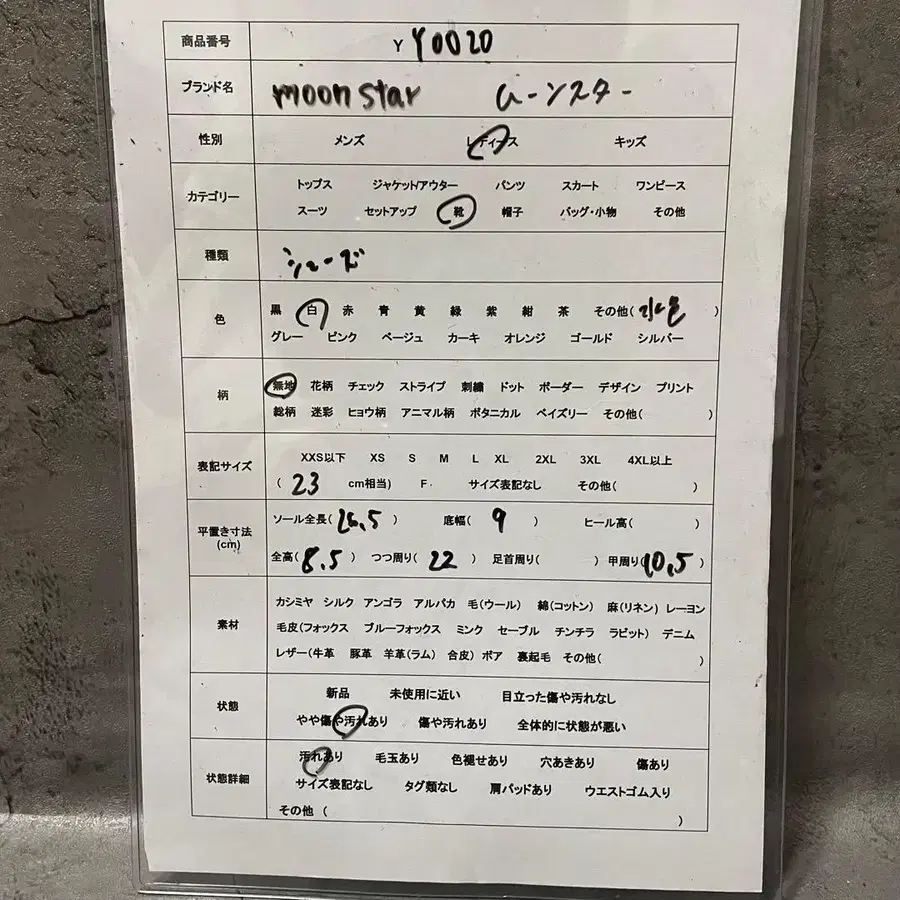 商品番号 Y Y0020
ブランド名 moon star ムーンスター
性別 メンズ レディース キッズ
カテゴリー トップス ジャケット/アウター パンツ スカート ワンピース
スーツ セットアップ 靴 帽子 バッグ・小物 その他
種類 シューズ
色 黒 白 赤 青 黄 緑 紫 紺 茶 その他(水色)
グレー ピンク ベージュ カーキ オレンジ ゴールド シルバー
柄 無地 花柄 チェック ストライプ 刺繍 ドット ボーダー デザイン プリント
総柄 迷彩 ヒョウ柄 アニマル柄 ボタニカル ペイズリー その他( )
表記サイズ XXS以下 XS S M L XL 2XL 3XL 4XL以上
( 23 cm相当) F サイズ表記なし その他( )
平置き寸法 ソール全長(26,5) 底幅( 9 ) ヒール高( )
(cm)
全高(8.5) つつ周り( 22 ) 足首周り( ) 甲周り(10,5)
素材 カシミヤ シルク アンゴラ アルパカ 毛(ウール) 綿(コットン) 麻(リネン) レーヨン
毛皮(フォックス ブルーフォックス ミンク セーブル チンチラ ラビット) デニム
レザー(牛革 豚革 羊革(ラム) 合皮) ボア 裏起毛 その他( )
状態 新品 未使用に近い 目立った傷や汚れなし
やや傷や汚れあり 傷や汚れあり 全体的に状態が悪い
状態詳細 汚れあり 毛玉あり 色褪せあり 穴あきあり 傷あり
サイズ表記なし タグ類なし 肩パッドあり ウエストゴム入り
その他 ( )